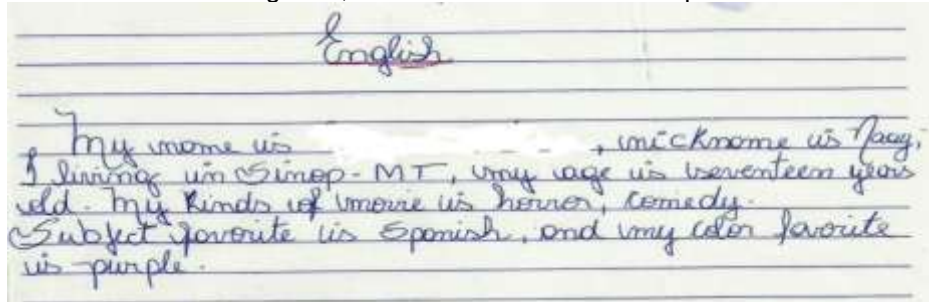 English
My name is , nickname is Naag,
I living in Sinop-MT, my age is seventeen years
old. My Kinds of movie is horror, comedy.
Subject favorite is Spanish, and my color favorite
is purple.